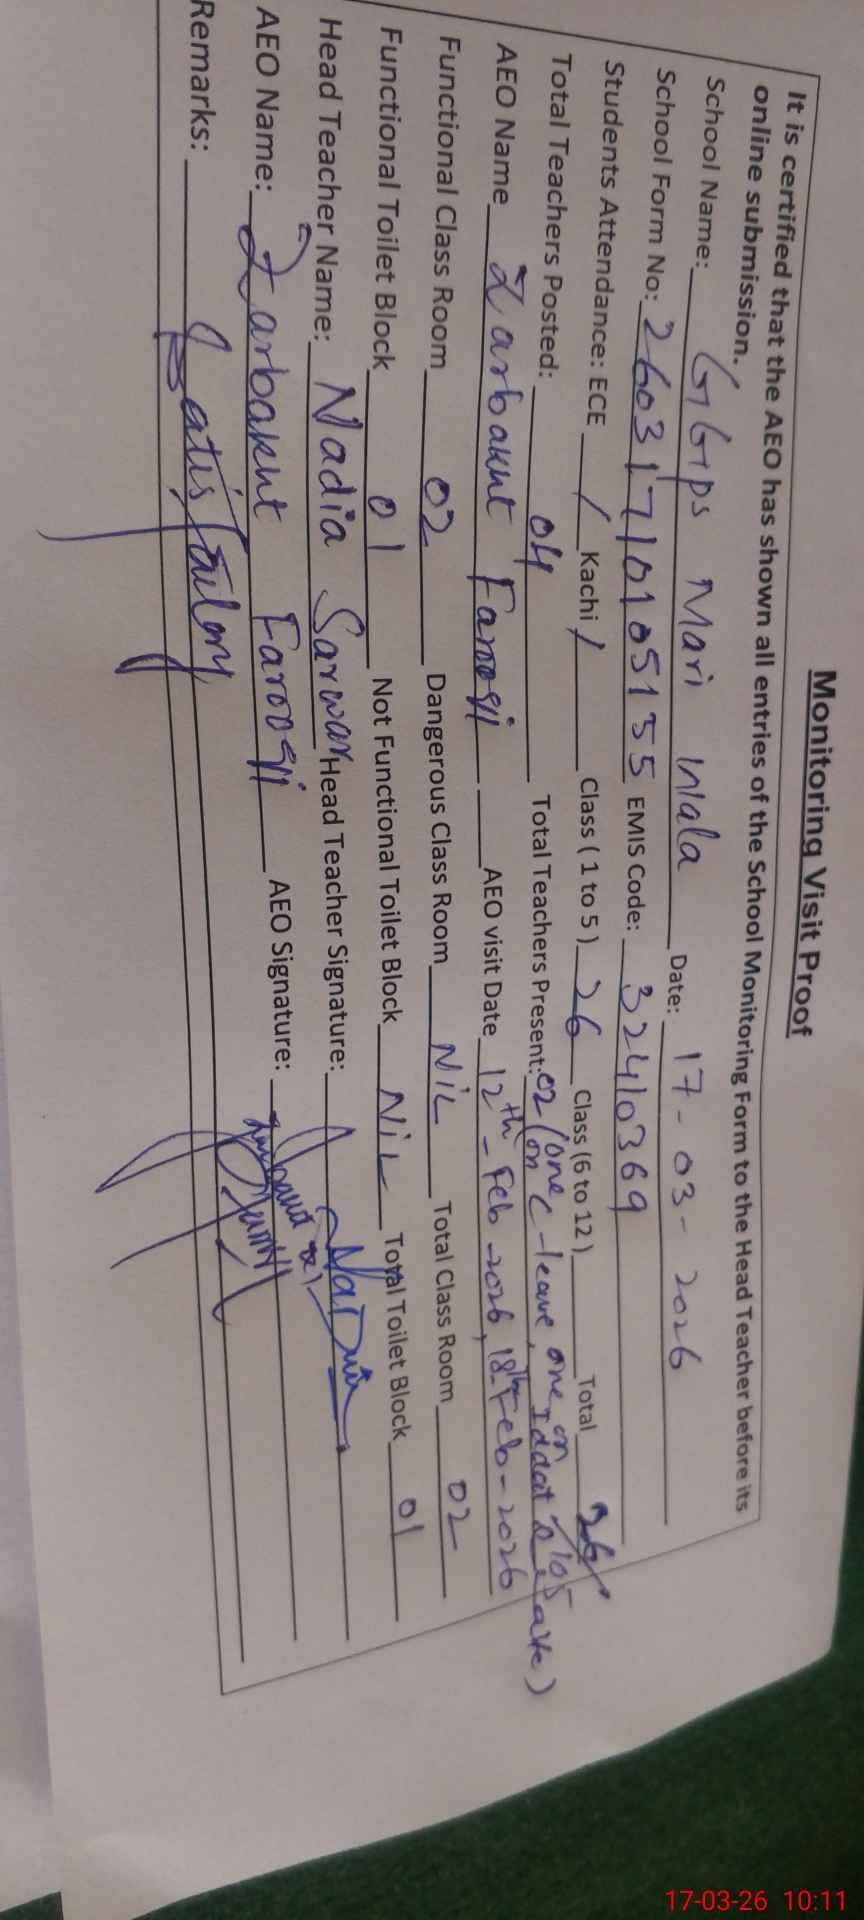 Monitoring Visit Proof
It is certified that the AEO has shown all entries of the School Monitoring Form to the Head Teacher before its
online submission.
School Name: GGPS Mari Wala Date: 17-03-2026
School Form No: 26031710105155 EMIS Code: 32410369
Students Attendance: ECE / Kachi / Class ( 1 to 5 ) 26 Class (6 to 12 ) Total 26/105
Total Teachers Posted: 04 Total Teachers Present: 02 (one on C-leave, one on Iddat leave)
AEO Name Zarbakht Farooqi AEO visit Date 12th - Feb - 2026, 18th Feb - 2026
Functional Class Room 02 Dangerous Class Room NiL Total Class Room 02
Functional Toilet Block 01 Not Functional Toilet Block NiL Total Toilet Block 01
Head Teacher Name: Nadia Sarwar Head Teacher Signature: Nadia
AEO Name: Zarbakht Farooqi AEO Signature:
Remarks: Satisfactory
17-03-26 10:11